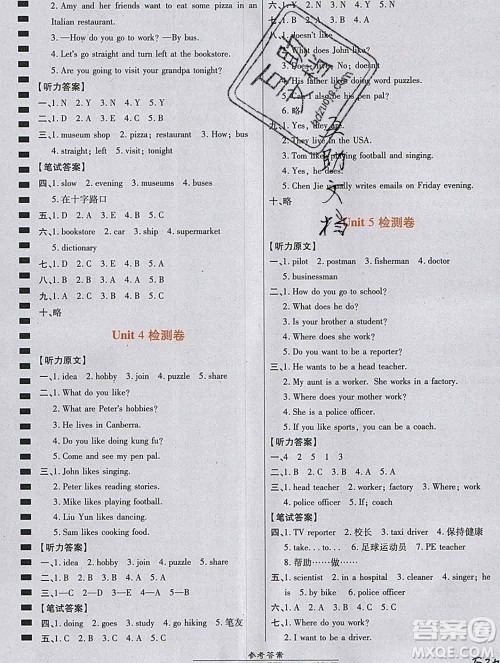 2. Amy and her friends want to eat some pizza in an
Italian restaurant.
3. —How do you go to work? —By bus.
4. Go straight and turn left at the bookstore.
5. Are you going to visit your grandpa tonight?
【听力答案】
一、1. N 2. Y 3. N 4. Y 5. N
二、1. D 2. A 3. E 4. C 5. B
三、1. museum shop 2. pizza; restaurant 3. How; bus
4. straight; left 5. visit; tonight
【笔试答案】
四、1. slow 2. evening 3. tomorrow 4. traffic
5. 在十字路口
五、1. D 2. A 3. E 4. B 5. C
六、1. bookstore 2. ship 3. car 4. supermarket
5. dictionary
七、1. D 2. C 3. A 4. B 5. E
八、1. B 2. B 3. A 4. A 5. C
九、1. C 2. A 3. B 4. B 5. A
十、略
Unit 4 检测卷
【听力原文】
一、1. idea 2. hobby 3. join 4. puzzle 5. share
二、1. What do you like?
2. What are Peter's hobbies?
3. He lives in Canberra.
4. Do you like doing kung fu?
5. Come and see my pen pal.
三、1. John likes singing.
2. Peter likes reading stories.
3. Mike likes playing football.
4. Liu Yun likes dancing.
5. Sam likes cooking food.
【听力答案】
一、1. B 2. B 3. A 4. A 5. B
二、1. C 2. B 3. C 4. A 5. A
三、1. D 2. C 3. A 4. B 5. E
【笔试答案】
四、1. doing 2. goes 3. studies 4. go 5. 笔友
五、1. C 2. C 3. B 4. C 5. B
六、1. Y 2. N 3. N
七、1.
2. What does John like?
3. Does he No; doesn't
4. His father likes doing word puzzles.
5. Can I also be his pen pal?
八、略
九、1. Yes, they are.
2. They live in the USA.
3. Tom likes playing football and singing.
4. Yes, he does.
5. Chen Jie usually writes emails on Friday evening.
十、略
Unit 5 检测卷
【听力原文】
一、1. pilot 2. postman 3. fisherman 4. doctor
5. businessman
二、1. How do you go to school?
2. What does he do?
3. Where does she work?
4. What does he do?
5. Do you want to be a policeman?
三、1. He wants to be a head teacher.
2. My aunt is a worker. She works in a factory.
3. Where does he work?
4. She is a police officer.
5. If you like sports, you can be a coach.
【听力答案】
一、4 2 5 1 3
二、1. B 2. C 3. B 4. A 5. A
三、1. head teacher 2. worker; factory 3. Where; work
4. police officer 5. If; coach
【笔试答案】
四、1. TV reporter 2. 校长 3. taxi driver 4. 保持健康
5. take... to... 6. 足球运动员 7. PE teacher
8. 帮助……做……
五、1. scientist 2. in a hospital 3. cleaner 4. singer; he
is 5. bike 6. cleaner; by bus
六、1. C 2. B 3. C 4. A 5. C
七、1. Where do you work?
2. I want to be a police officer.
参考答案
百助文档
baizuwendang.com
百助文档
答案圈
MXQE.COM